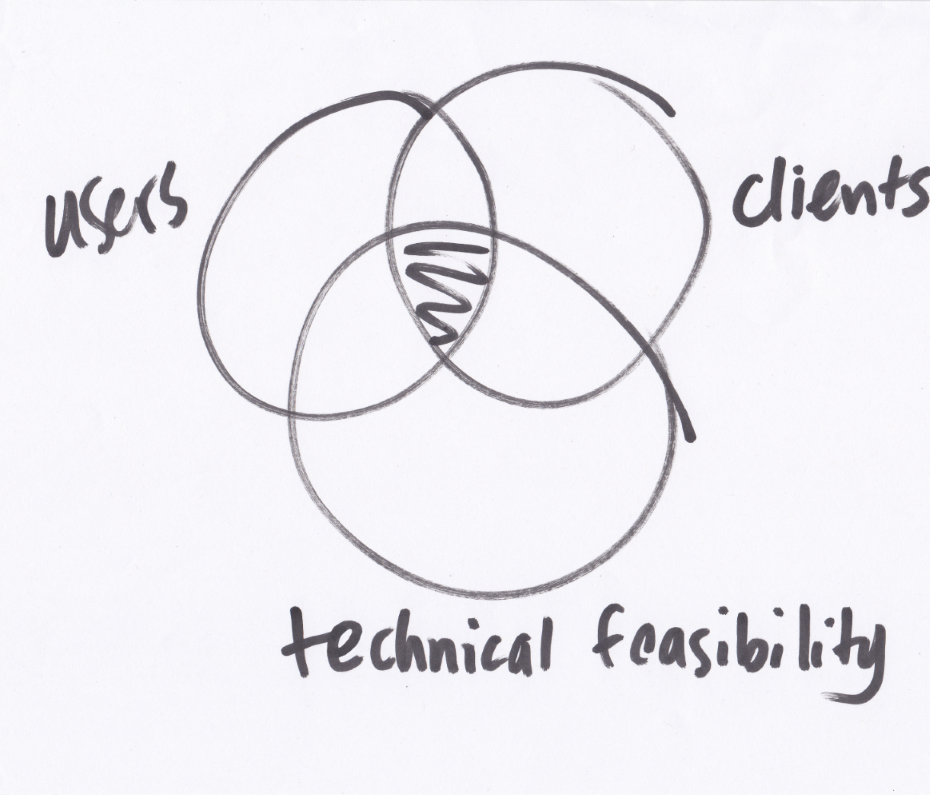 users
clients
technical feasibility